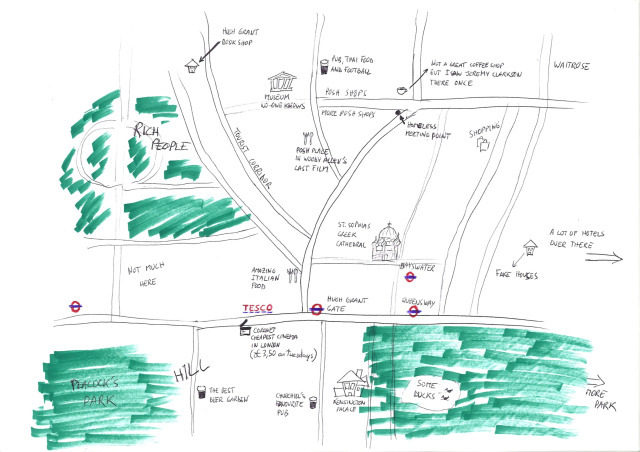 HUGH GRANT
BOOK SHOP
PUB, THAI FOOD
AND FOOTBALL
NOT A GREAT COFFEE SHOP
BUT I SAW JEREMY CLARKSON
THERE ONCE
WAITROSE
MUSEUM
NO-ONE KNOWS
POSH SHOPS
MORE POSH SHOPS
HOMELESS
MEETING POINT
SHOPPING
RICH
PEOPLE
TOURIST CORRIDOR
POSH PLACE
IN WOODY ALLEN'S
LAST FILM
ST. SOPHIA'S
GREEK
CATHEDRAL
A LOT OF HOTELS
OVER THERE
NOT MUCH
HERE
AMAZING
ITALIAN
FOOD
BAYSWATER
FAKE HOUSES
TESCO
HUGH GRANT
GATE
QUEENSWAY
CORONET
CHEAPEST CINEMA
IN LONDON
(£3,50 on tuesdays)
HILL
PEACOCK'S
PARK
THE BEST
BEER GARDEN
CHURCHILL'S
FAVOURITE
PUB
KENSINGTON
PALACE
SOME
DUCKS
MORE
PARK